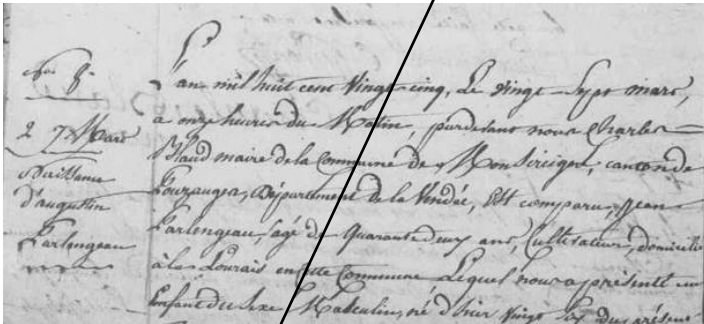 No 8
27 Mars
Naissance
d'augustin
Parlengeau
L'an mil huit cent Vingt-cinq, Le Vingt Sept mars,
a onze heures du Matin, pardevant nous Charles
Blaud maire de la Commune de canton de
Pouzauges, Département de la Vendée, Est comparu, Jean
Parlengeau, âgé de Quarante deux ans, Cultivateur, domicilié
à la en cette Commune Lequel nous a présenté un
Enfant du Sexe Masculin, né d'hier Vingt Six du présent